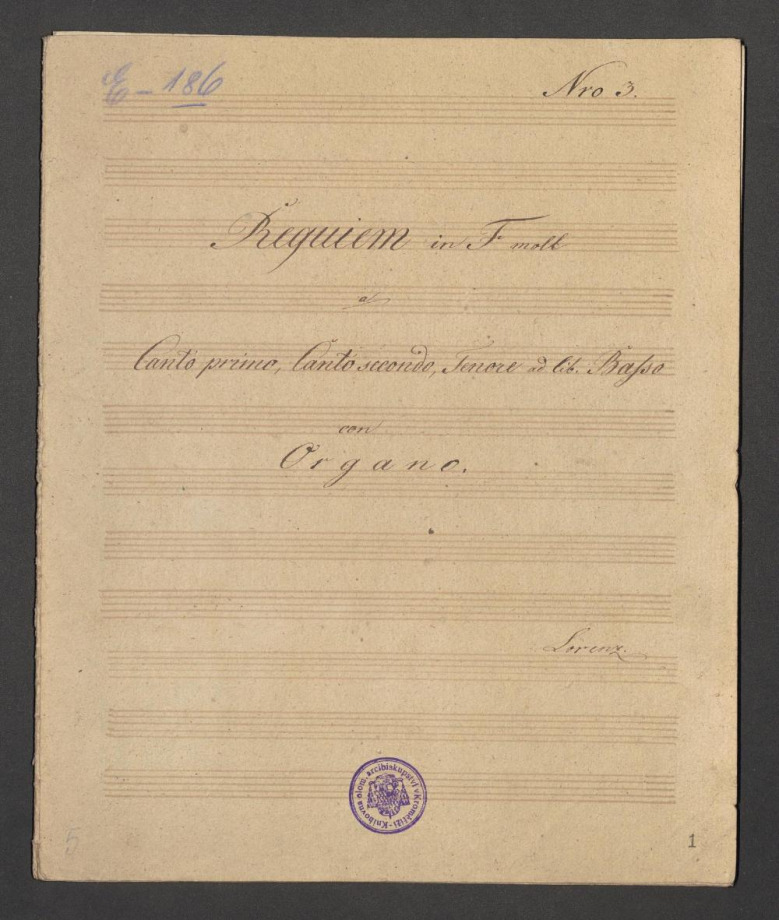 E - 186
Nro 3.
Requiem in F moll
a
Canto primo, Canto secondo, Tenore ad lib. Basso
con
Organo.
Lorenz.
Knihovna olom. arcibiskupství v Kroměříži
5
1